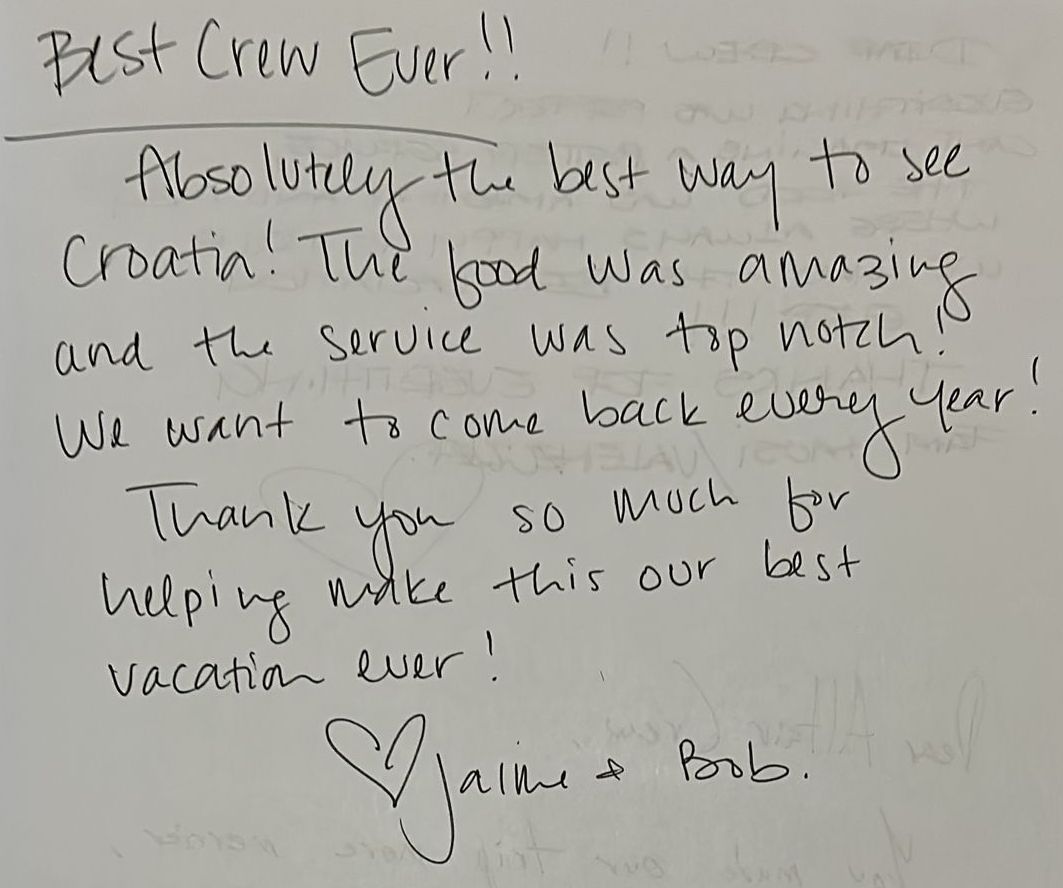 Best Crew Ever!!
Absolutely the best way to see
Croatia! The food was amazing
and the service was top notch!
We want to come back every year!
Thank you so much for
helping make this our best
vacation ever!
♡ Jaime + Bob.